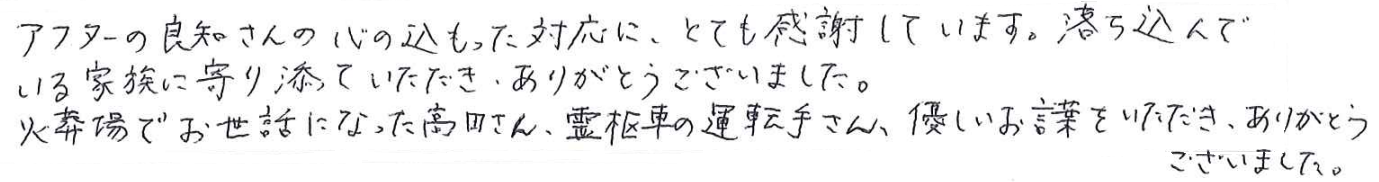 アフターの良知さんの心の込もった対応に、とても感謝しています。落ち込んで
いる家族に寄り添っていただき、ありがとうございました。
火葬場でお世話になった高田さん、霊柩車の運転手さん、優しいお言葉をいただき、ありがとう
ございました。